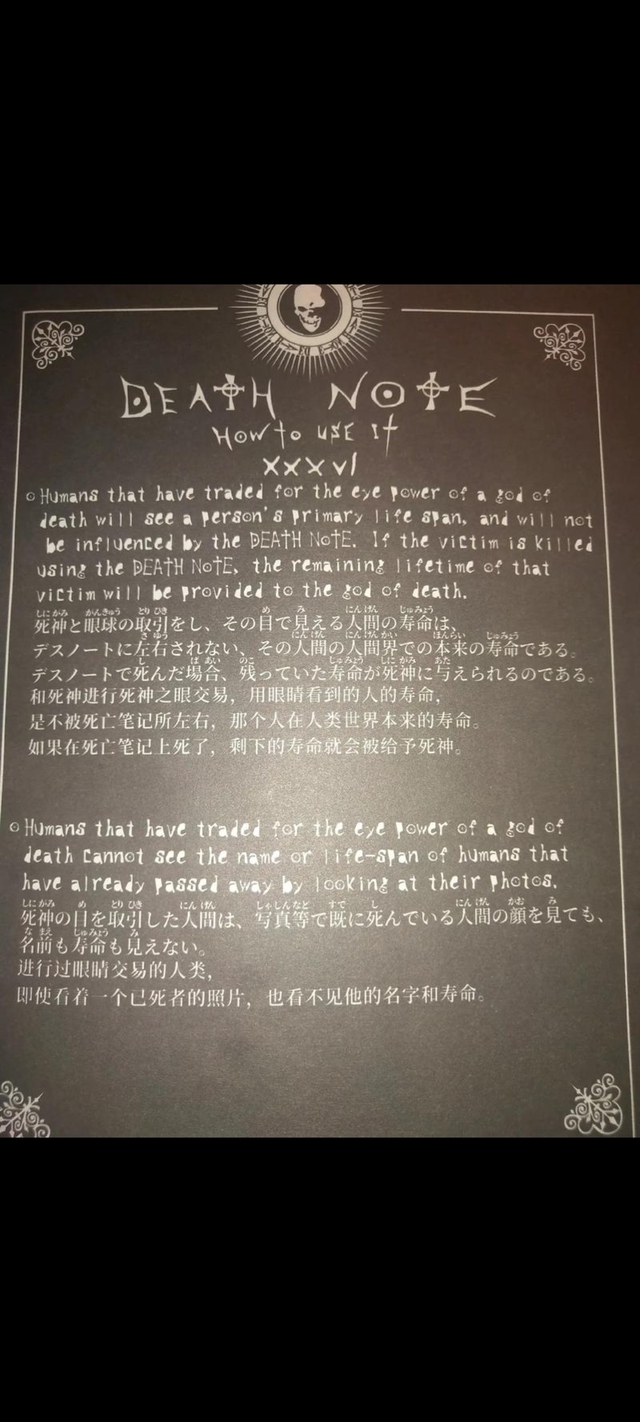 DEATH NOTE
HOW TO USE IT
XXXVI
Humans that have traded for the eye power of a god of
death will see a person's primary life span, and will not
be influenced by the DEATH NOTE. If the victim is killed
using the DEATH NOTE, the remaining lifetime of that
victim will be provided to the god of death.
死神と眼球の取引をし、その目で見える人間の寿命は、
デスノートに左右されない、その人間の人間界での本来の寿命である。
デスノートで死んだ場合、残っていた寿命が死神に与えられるのである。
和死神进行死神之眼交易，用眼睛看到的人的寿命，
是不被死亡笔记所左右，那个人在人类世界本来的寿命。
如果在死亡笔记上死了，剩下的寿命就会被给予死神。
Humans that have traded for the eye power of a god of
death cannot see the name or life-span of humans that
have already passed away by looking at their photos.
死神の目を取引した人間は、写真等で既に死んでいる人間の顔を見ても、
名前も寿命も見えない。
进行过眼睛交易的人类，
即使看着一个已死者的照片，也看不见他的名字和寿命。